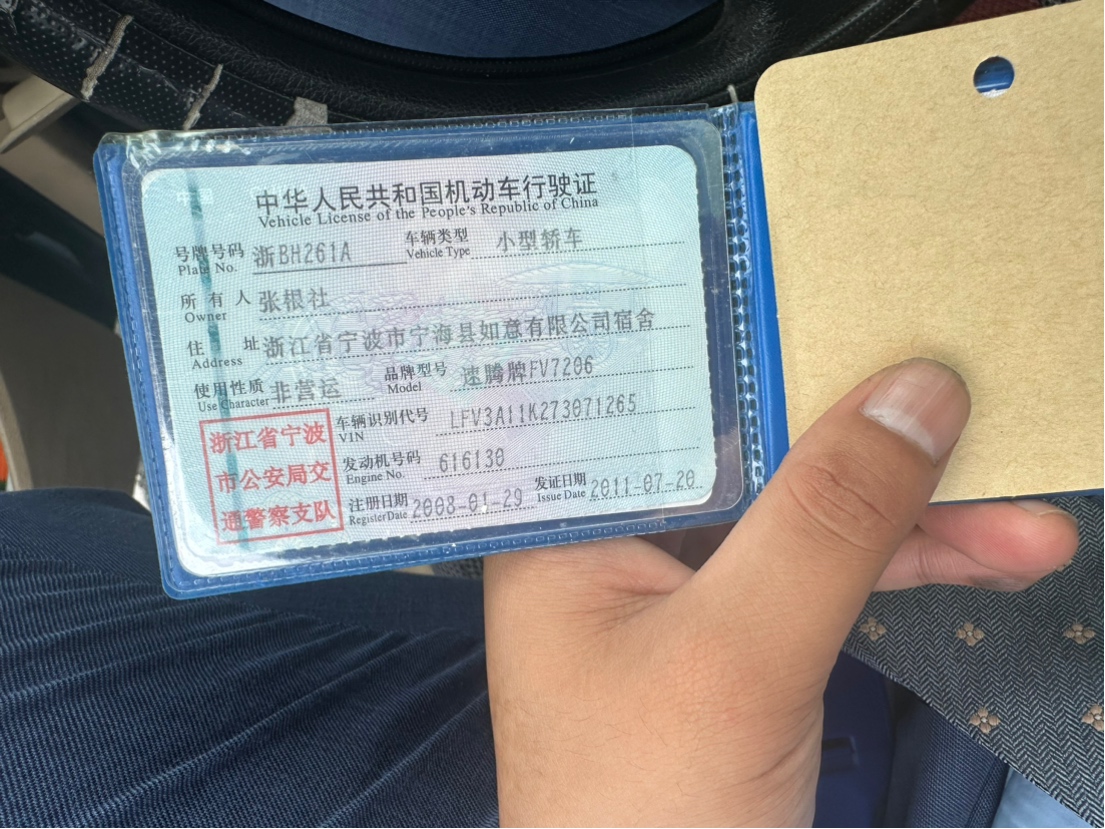 中华人民共和国机动车行驶证
Vehicle License of the People's Republic of China
号牌号码 浙BH261A 车辆类型 小型轿车
Plate No. Vehicle Type
所有人 张根社
Owner
住址 浙江省宁波市宁海县如意有限公司宿舍
Address
使用性质 非营运 品牌型号 速腾牌FV7206
Use Character Model
车辆识别代号 LFV3A11K273071265
VIN
发动机号码 616130
Engine No.
注册日期 2008-01-29 发证日期 2011-07-20
Register Date Issue Date
浙江省宁波
市公安局交
通警察支队